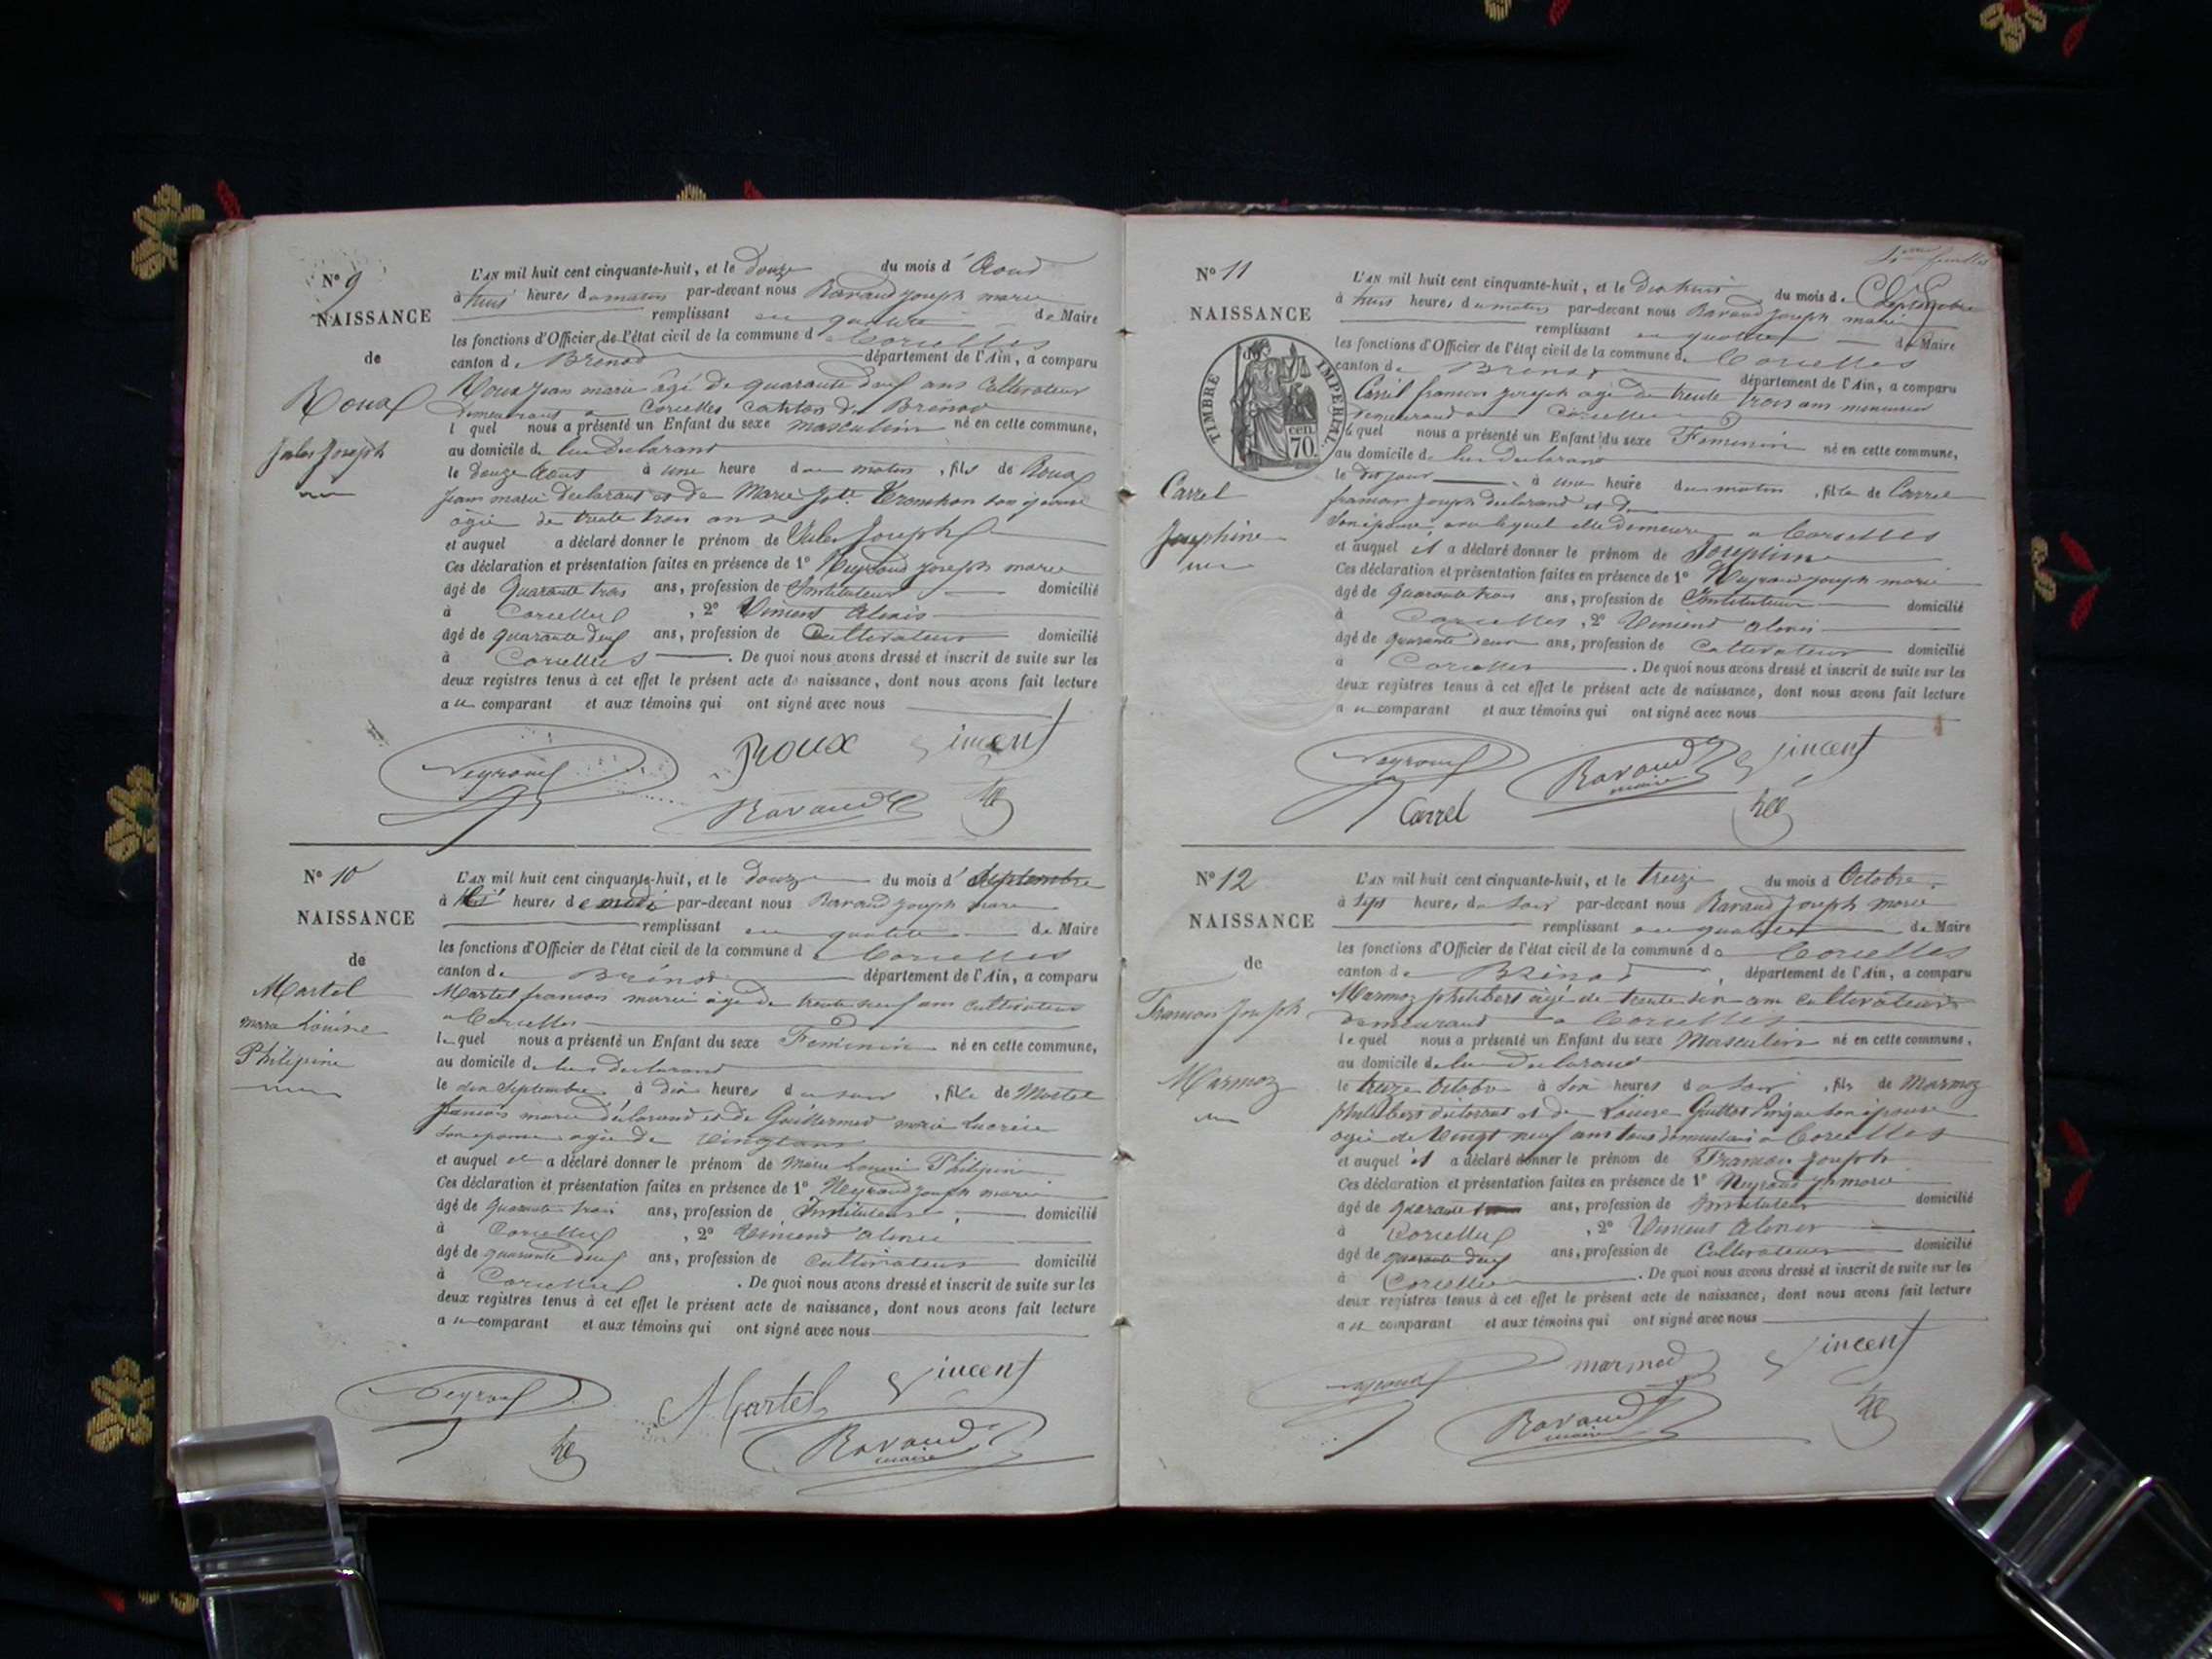 N° 9
NAISSANCE
de
Roux
Jules Joseph
L'AN mil huit cent cinquante-huit, et le Douze du mois d'Aout
à huit heures du matin par-devant nous Ravaud Joseph marie
remplissant en qualité de Maire
les fonctions d'Officier de l'état civil de la commune d Corcelles
canton de Brénod département de l'Ain, a comparu
Roux Jean marie âgé de quarante deux ans Cultivateur
demeurant a Corcelles canton de Brénod
l quel nous a présenté un Enfant du sexe masculin né en cette commune,
au domicile de lui Déclarant
le Douze Aout à une heure du matin, fils de Roux
Jean marie declarant et de Marie son épouse
agée de trente trois ans
et auquel a déclaré donner le prénom de Jules Joseph
Ces déclaration et présentation faites en présence de 1° Neyroud Joseph marie
âgé de Quarante trois ans, profession de Instituteur domicilié
à Corcelles, 2° Vincent Alexis
âgé de quarante deux ans, profession de Cultivateur domicilié
à Corcelles. De quoi nous avons dressé et inscrit de suite sur les
deux registres tenus à cet effet le présent acte de naissance, dont nous avons fait lecture
a u comparant et aux témoins qui ont signé avec nous
Neyroud Roux Vincent
Ravaud
N° 10
NAISSANCE
de
Martel
marie Louise
Philipine
L'AN mil huit cent cinquante-huit, et le douze du mois d' Septembre
à heures de par-devant nous Ravaud Joseph marie
remplissant en qualité de Maire
les fonctions d'Officier de l'état civil de la commune d Corcelles
canton de Brénod département de l'Ain, a comparu
Martel francois marie âgé de trente neuf ans cultivateur
a Corcelles
lequel nous a présenté un Enfant du sexe Feminin né en cette commune,
au domicile de lui declarant
le dix Septembre à dix heures du soir, fille de Martel
francois marie déclarant et de Guillermet marie Lucrèce
son epouse agée de vingt ans
et auquel a déclaré donner le prénom de Marie Louise Philipine
Ces déclaration et présentation faites en présence de 1° Neyroud Joseph marie
âgé de Quarante trois ans, profession de Instituteur, domicilié
à Corcelles, 2° Vincent Alexis
âgé de quarante deux ans, profession de cultivateur domicilié
à Corcelles. De quoi nous avons dressé et inscrit de suite sur les
deux registres tenus à cet effet le présent acte de naissance, dont nous avons fait lecture
a u comparant et aux témoins qui ont signé avec nous
Neyroud Martel Vincent
Ravaud
maire
N° 11
NAISSANCE
TIMBRE IMPERIAL
cen.
70.
Carrel
Josephine
L'AN mil huit cent cinquante-huit, et le dix huit du mois de Septembre
à huit heures du matin par-devant nous Ravaud Joseph marie
remplissant en qualité de Maire
les fonctions d'Officier de l'état civil de la commune de Corcelles
canton de Brénod département de l'Ain, a comparu
Carrel francois joseph agé de trente trois ans menuisier
demeurand a Corcelles
le quel nous a présenté un Enfant du sexe Feminin né en cette commune,
au domicile de lui declarant
le dit jour à une heure du matin, fille de Carrel
francois joseph declarand et de
son épouse avec lequel elle demeure a Corcelles
et auquel il a déclaré donner le prénom de Josephine
Ces déclaration et présentation faites en présence de 1° Neyroud joseph marie
âgé de Quarante trois ans, profession de Instituteur domicilié
à Corcelles, 2° Vincent Alexis
âgé de quarante deux ans, profession de Cultivateur domicilié
à Corcelles. De quoi nous avons dressé et inscrit de suite sur les
deux registres tenus à cet effet le présent acte de naissance, dont nous avons fait lecture
a u comparant et aux témoins qui ont signé avec nous
Neyroud Ravaud Vincent
maire
Carrel
N° 12
NAISSANCE
de
Francois Joseph
Marmoz
L'AN mil huit cent cinquante-huit, et le treize du mois d Octobre
à sept heures du soir par-devant nous Ravaud Joseph marie
remplissant en qualité de Maire
les fonctions d'Officier de l'état civil de la commune de Corcelles
canton de Brénod, département de l'Ain, a comparu
Marmoz philibert âgé de trente six ans cultivateur
demeurand a Corcelles
le quel nous a présenté un Enfant du sexe Masculin né en cette commune,
au domicile de lui Declarant
le treize Octobre à six heures du soir, fils de Marmoz
philibert déclarant et de Louise Guillot son épouse
agée de Vingt neuf ans tous a Corcelles
et auquel il a déclaré donner le prénom de Francois Joseph
Ces déclaration et présentation faites en présence de 1° Neyroud Jh marie
âgé de Quarante ans, profession de Instituteur domicilié
à Corcelles, 2° Vincent Alexis
âgé de quarante deux ans, profession de Cultivateur domicilié
à Corcelles. De quoi nous avons dressé et inscrit de suite sur les
deux registres tenus à cet effet le présent acte de naissance, dont nous avons fait lecture
a u comparant et aux témoins qui ont signé avec nous
Neyroud marmod Vincent
Ravaud
maire